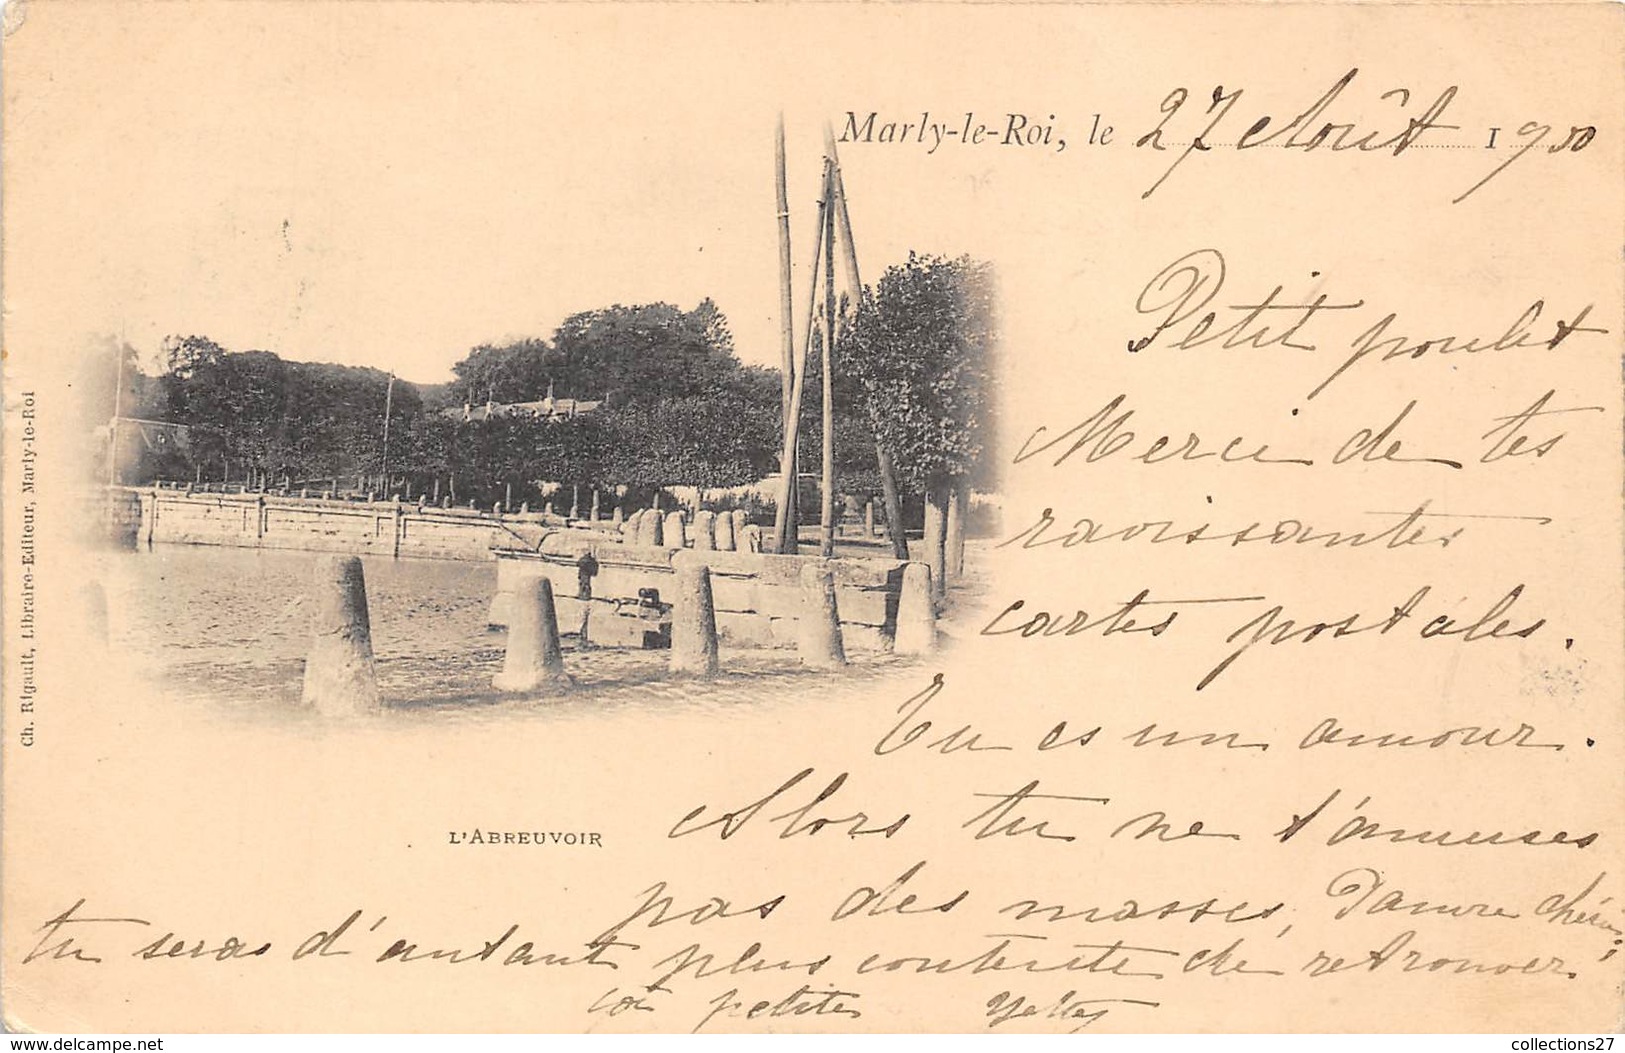 Marly-le-Roi, le 27 Août 1900
Petit poulet
Merci de tes
ravissantes
cartes postales.
Tu es un amour.
Alors tu ne t'amuses
pas des masses, Pauvre chérie,
tu seras d'autant plus contente de retrouver
petites
L'ABREUVOIR
Ch. Rigault, Libraire-Editeur, Marly-le-Roi
collections27